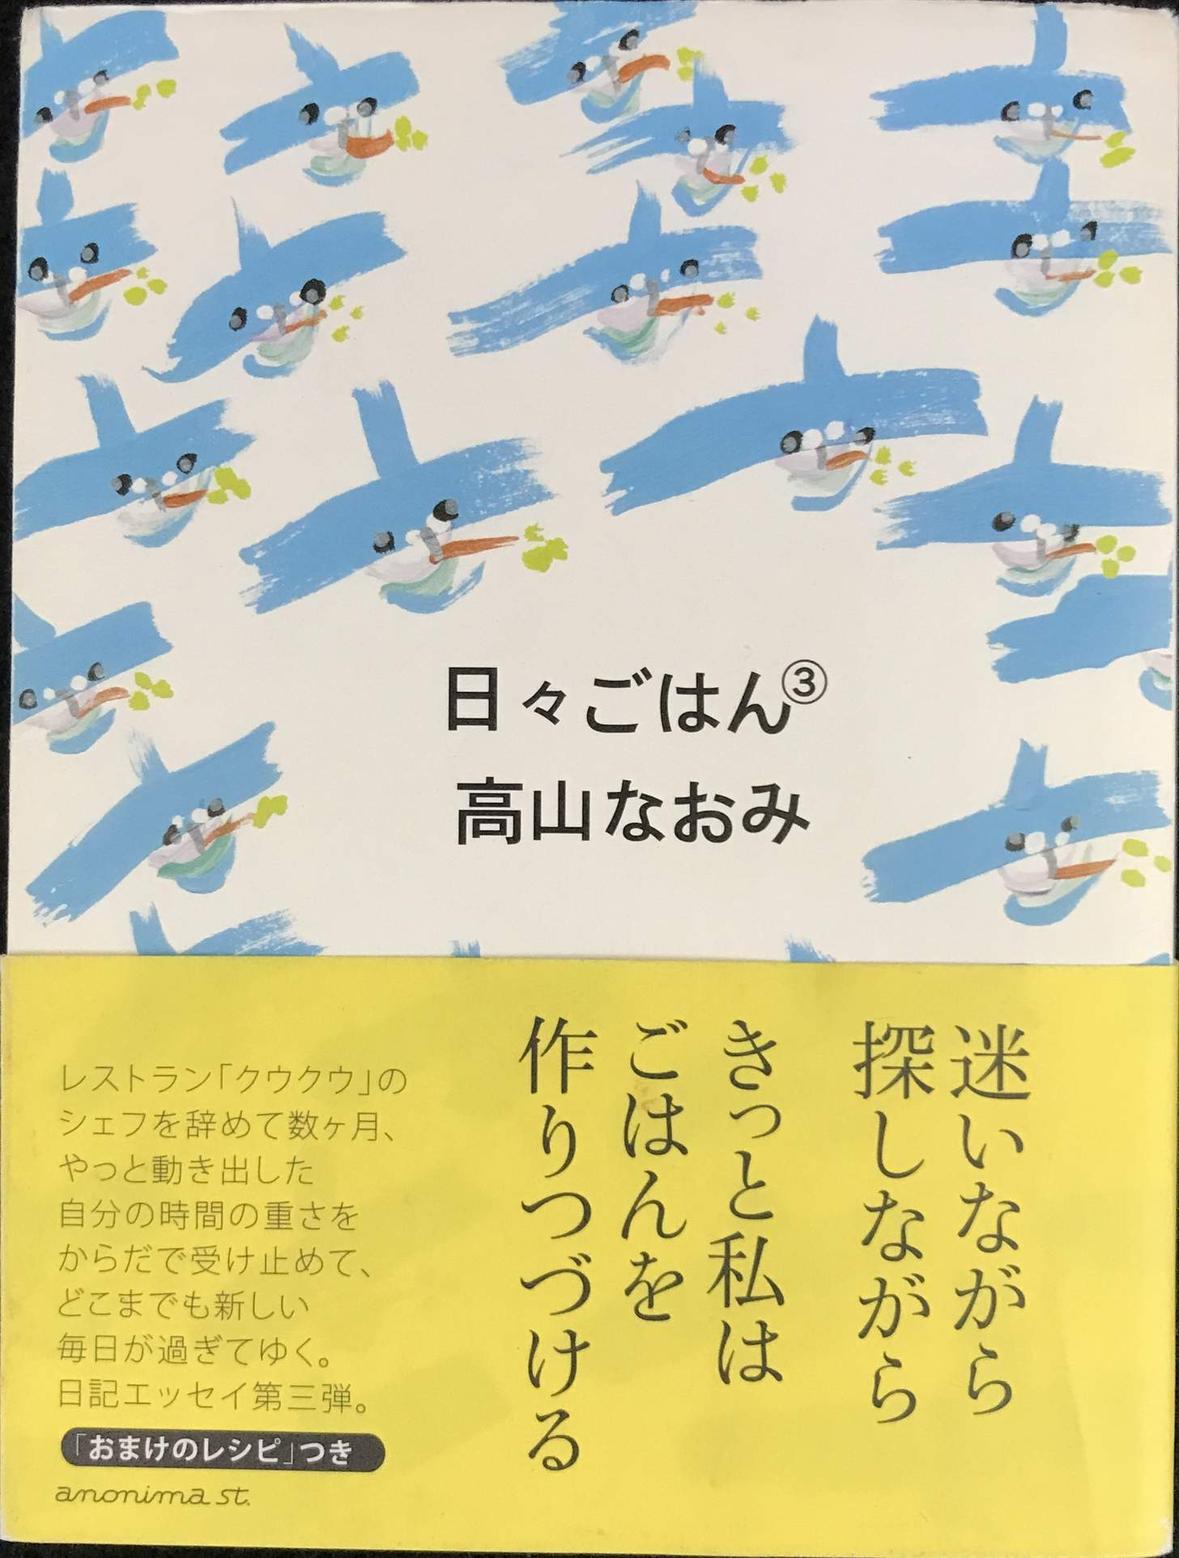 日々ごはん③
高山なおみ
迷いながら
探しながら
きっと私は
ごはんを
作りつづける
レストラン「クウクウ」の
シェフを辞めて数ヶ月、
やっと動き出した
自分の時間の重さを
からだで受け止めて、
どこまでも新しい
毎日が過ぎてゆく。
日記エッセイ第三弾。
「おまけのレシピ」つき
anonima st.